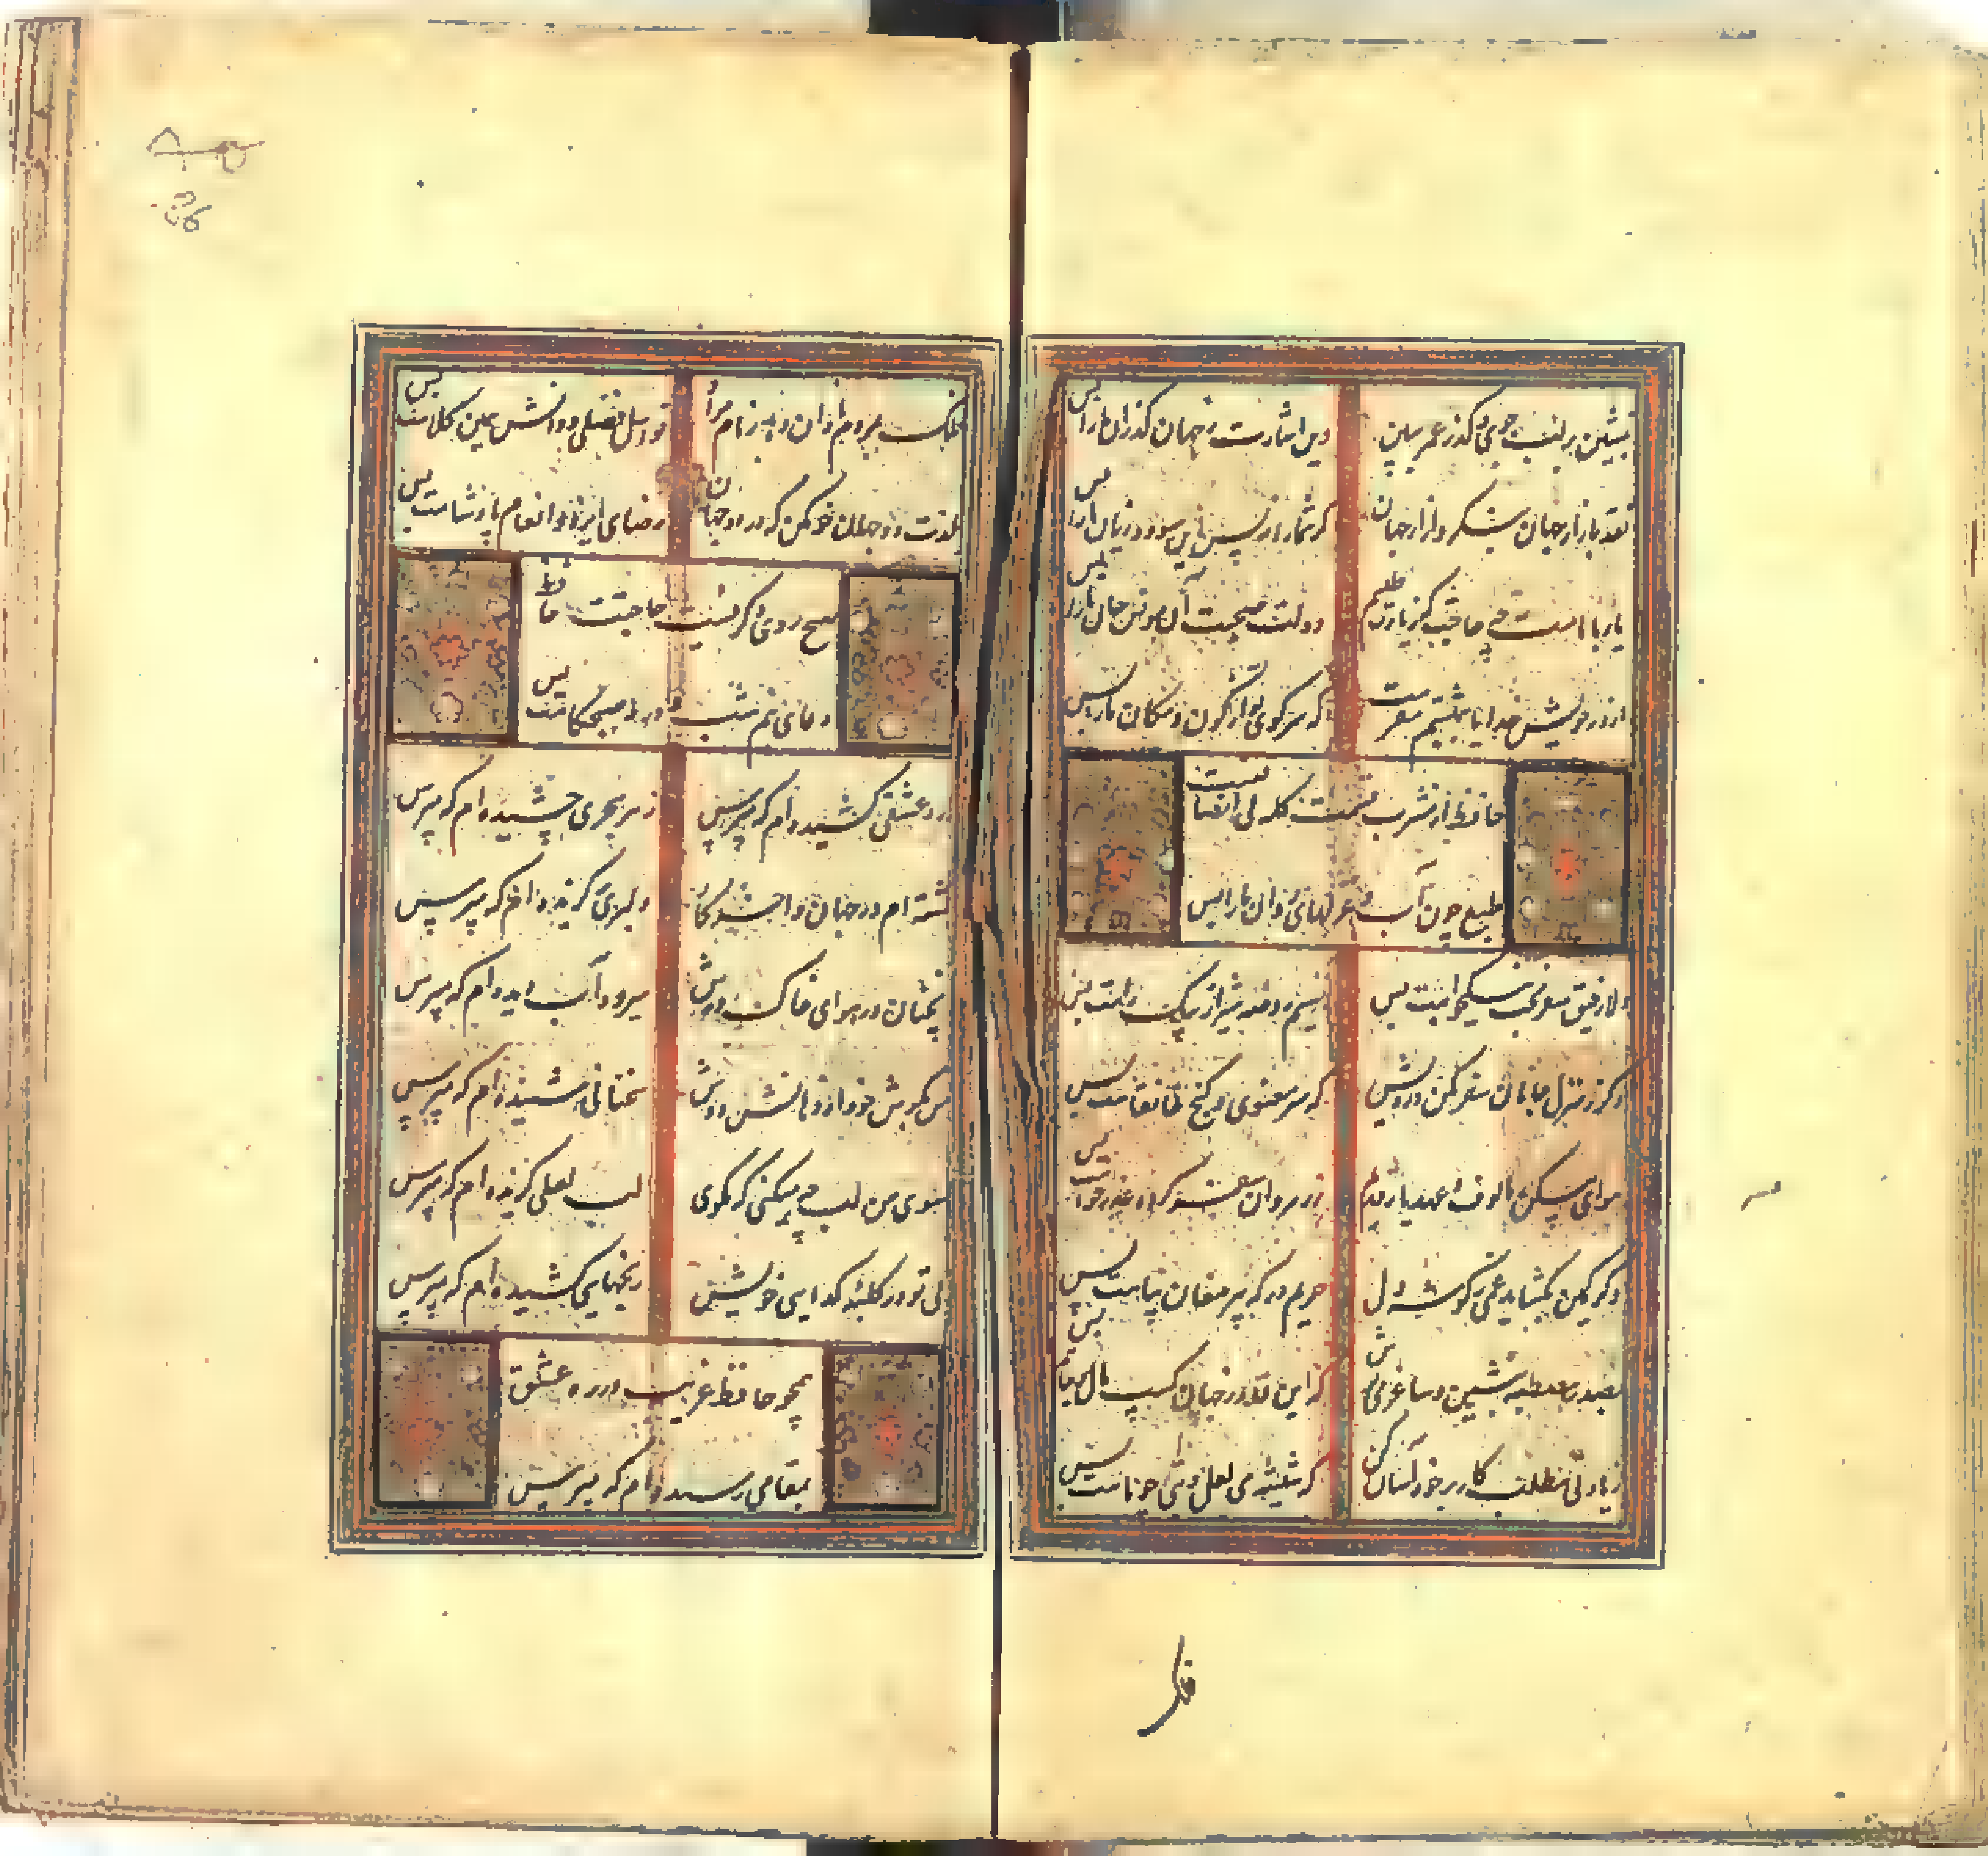 بنشین بر لب جوی و گذر عمر ببین
وین اشارت ز جهان گذران ما را بس
نقد بازار جهان بنگر و آزار جهان
گر شما را نه بس این سود و زیان ما را بس
یار با ماست چه حاجت که زیادت طلبیم
دولت صحبت آن مونس جان ما را بس
از در خویش خدایا ببهشتم مفرست
که سر کوی تو از کون و مکان ما را بس
حافظ از مشرب قسمت گله بی انصافیست
طبع چون آب و غزلهای روان ما را بس
دلا رفیق سفر بخت نیکخواهت بس
نسیم روضه شیراز پیک راهت بس
دگر ز منزل جانان سفر مکن درویش
که سیر معنوی و کنج خانقاهت بس
هوای مسکن مالوف و عهد یار قدیم
ز ره روان سفر کرده عذر خواهت بس
وگر کمین بگشاید غمی ز گوشه دل
حریم درگه پیر مغان پناهت بس
بصدر مصطبه بنشین و ساغر می نوش
که این قدر ز جهان کسب مال و جاهت بس
زیادتی مطلب کار بر خود آسان کن
که شیشه می لعل و بتی چو ماهت بس
فلک
فلک بمردم نادان دهد زمام مراد
تو اهل فضلی و دانش همین گناهت بس
بمنت دو جهان خو مکن که در دو جهان
رضای ایزد و انعام پادشاهت بس
بهیچ ورد دگر نیست حاجت حافظ
دعای نیم شب و درد صبحگاهت بس
درد عشقی کشیده ام که مپرس
زهر هجری چشیده ام که مپرس
گشته ام در جهان و آخر کار
دلبری گزیده ام که مپرس
آنچنان در هوای خاک درش
میرود آب دیده ام که مپرس
من بگوش خود از دهانش دوش
سخنانی شنیده ام که مپرس
سوی من لب چه میگزی که مگوی
لب لعلی گزیده ام که مپرس
بی تو در کلبه گدایی خویش
رنجهایی کشیده ام که مپرس
همچو حافظ غریب در ره عشق
بمقامی رسیده ام که مپرس